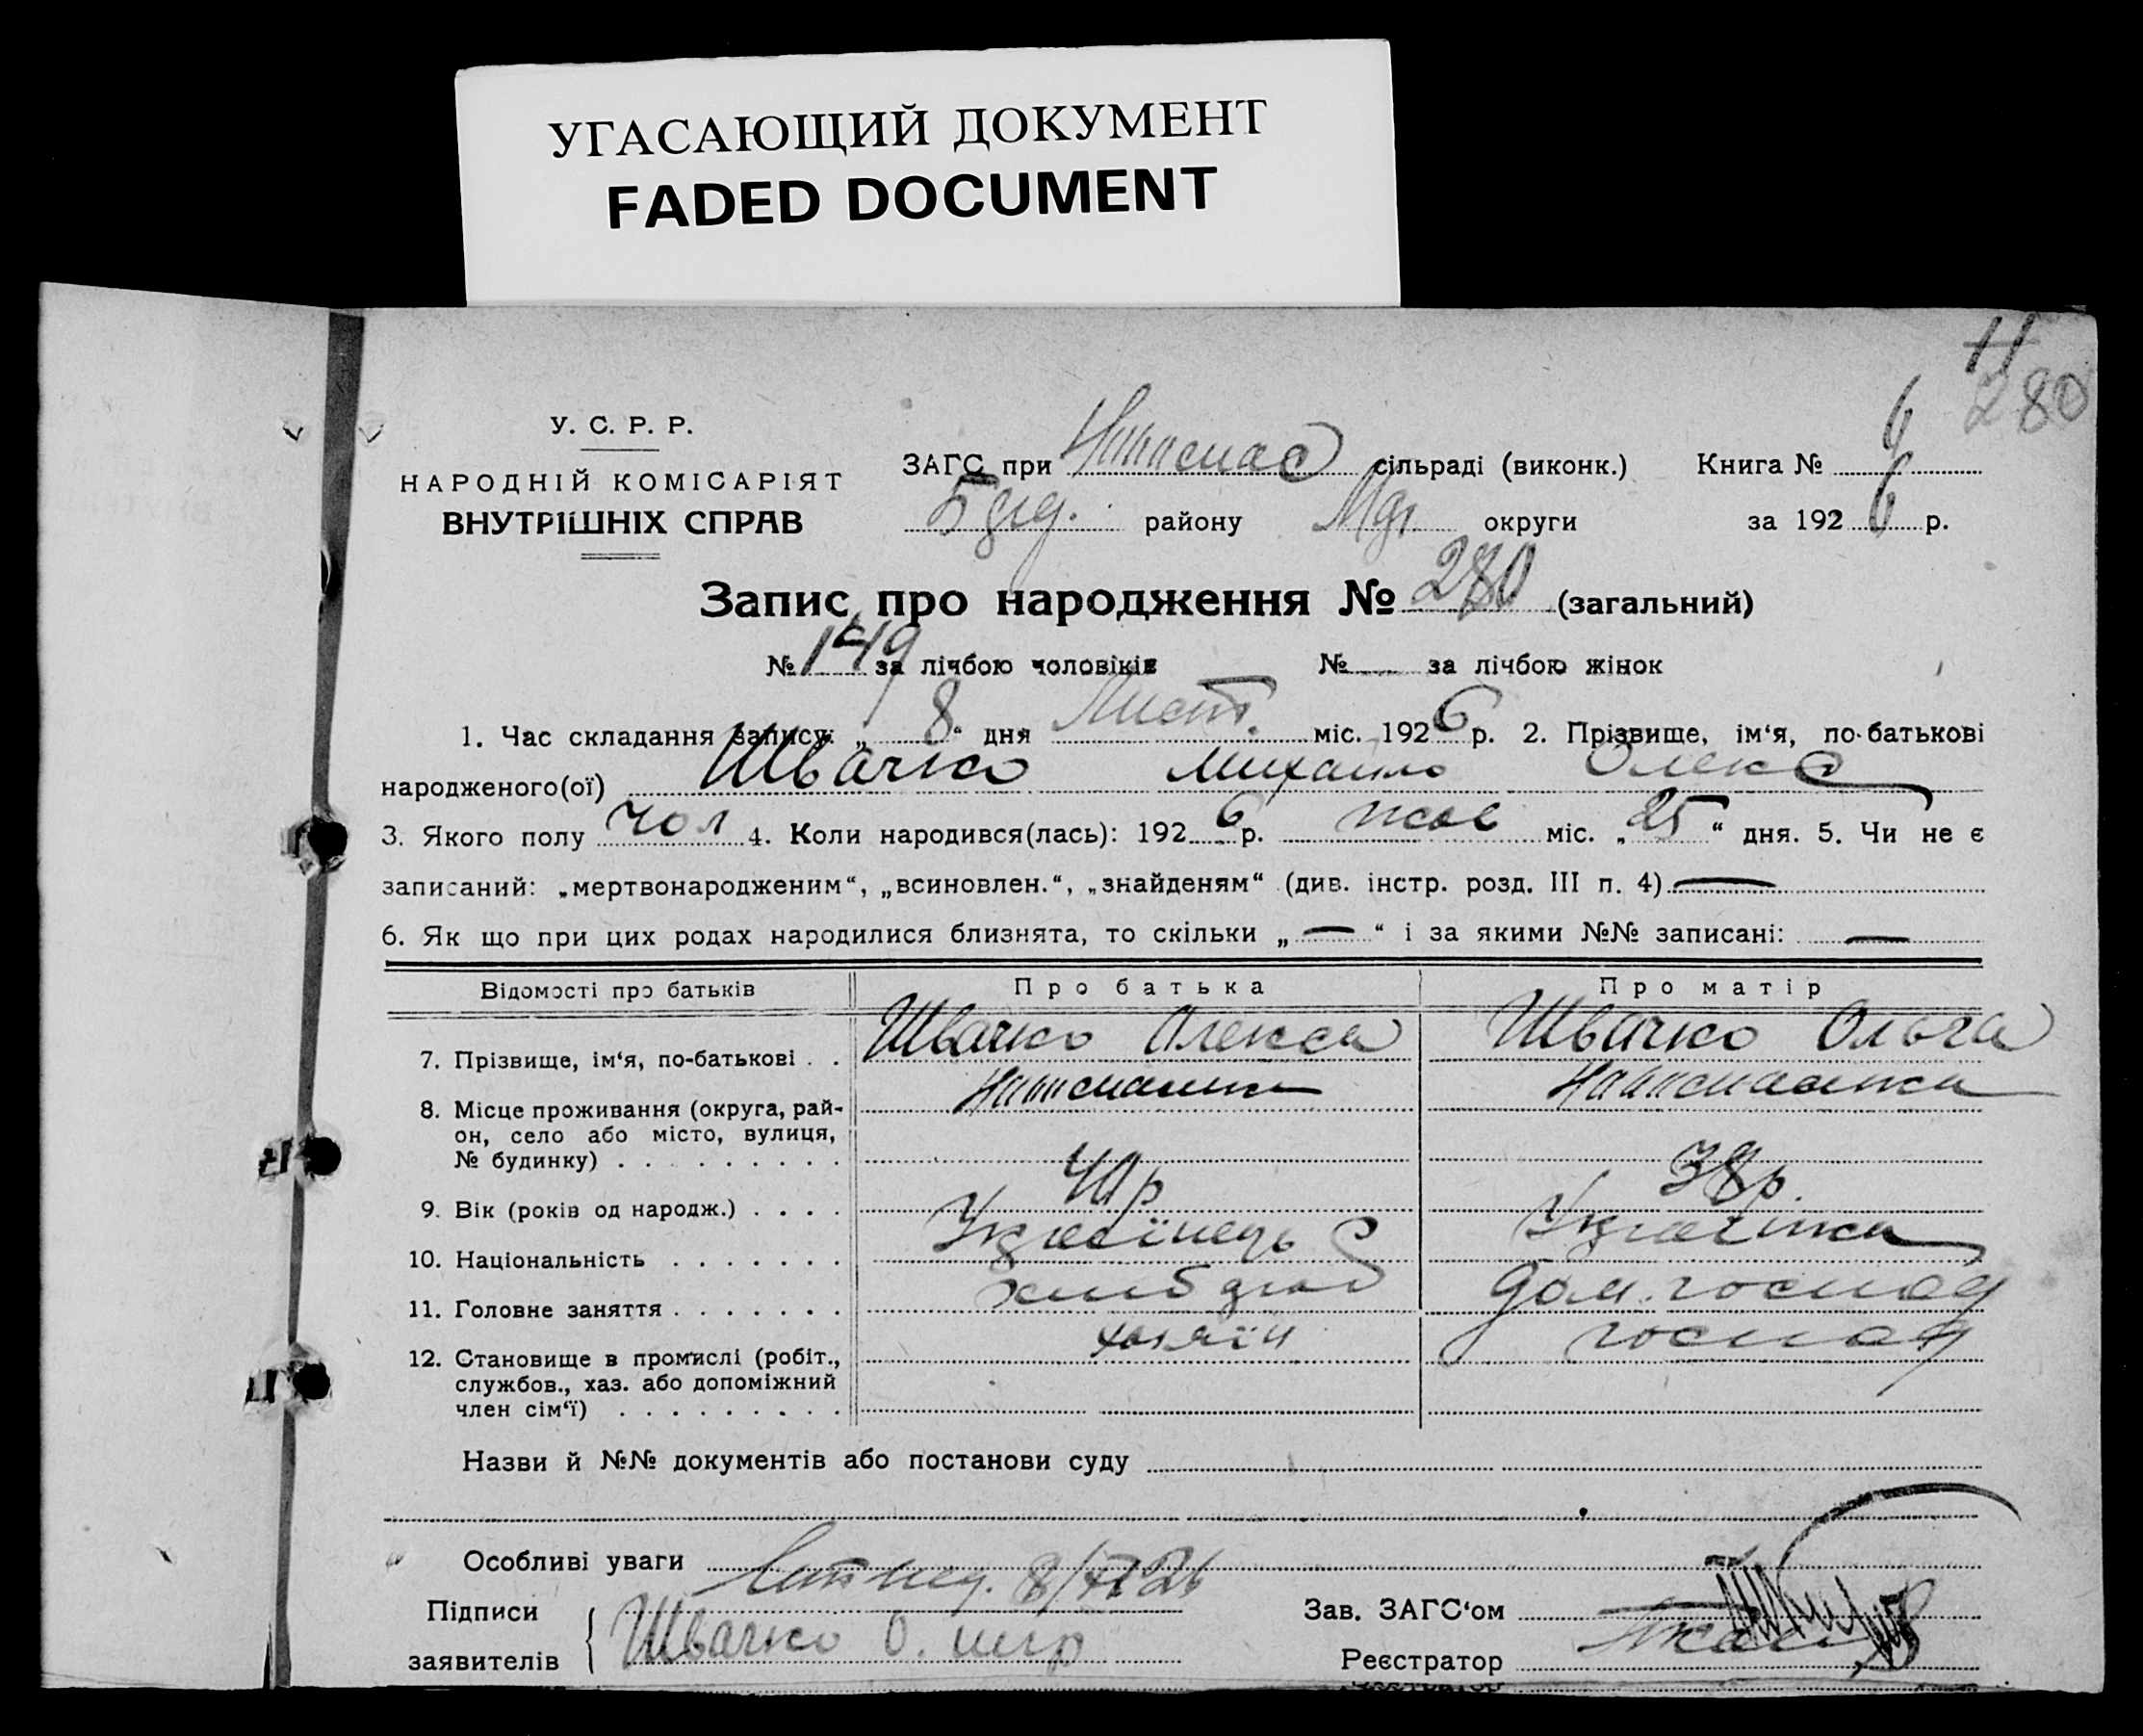 УГАСАЮЩИЙ ДОКУМЕНТ
FADED DOCUMENT
280
У. С. Р. Р.
НАРОДНІЙ КОМІСАРІЯТ
ВНУТРІШНІХ СПРАВ
ЗАГС при сільраді (виконк.) Книга № 6
району округи за 1926 р.
Запис про народження № 280 (загальний)
№ 149 за лічбою чоловіків № за лічбою жінок
1. Час складання запису: „ 8 “ дня Лист. міс. 1926 р. 2. Прізвище, ім‘я, по-батькові
народженого(ої) Швачко Михайло Олекс
3. Якого полу чол 4. Коли народився(лась): 1926 р. жов міс. „ 25 “ дня. 5. Чи не є
записаний: „мертвонародженим“, „всиновлен.“, „знайденям“ (див. інстр. розд. III п. 4) —
6. Як що при цих родах народилися близнята, то скільки „ — “ і за якими №№ записані: —
Відомості про батьків Про батька Про матір
7. Прізвище, ім‘я, по-батькові . . Швачко Олекса Швачко Ольга
8. Місце проживання (округа, рай-
он, село або місто, вулиця,
№ будинку) . . . . . . . . .
9. Вік (років од народж.) . . . . 40 р 38 р.
10. Національність . . . . . . . Українець Українка
11. Головне заняття . . . . . . . дом. господ
12. Становище в промислі (робіт., хазяїн господ
службов., хаз. або допоміжний
член сім‘ї) . . . . . . . . .
Назви й №№ документів або постанови суду
Особливі уваги
Підписи
заявителів Швачко О.
Зав. ЗАГС‘ом
Реєстратор